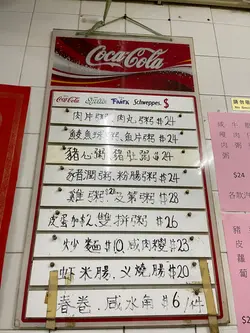 Coca-Cola
Coca-Cola Sprite Fanta Schweppes $
肉片粥.肉丸粥 #24
鯪魚球粥.魚片粥 #24
豬心粥.豬肚粥 #24
豬潤粥.粉腸粥 #24
雞粥 #28 及第粥 #28
皮蛋加#2.雙拼粥 #26
炒麵 #10.咸肉糭 #23
虾米腸.叉燒腸 #20
春卷.咸水角 #6/件
$24
$24